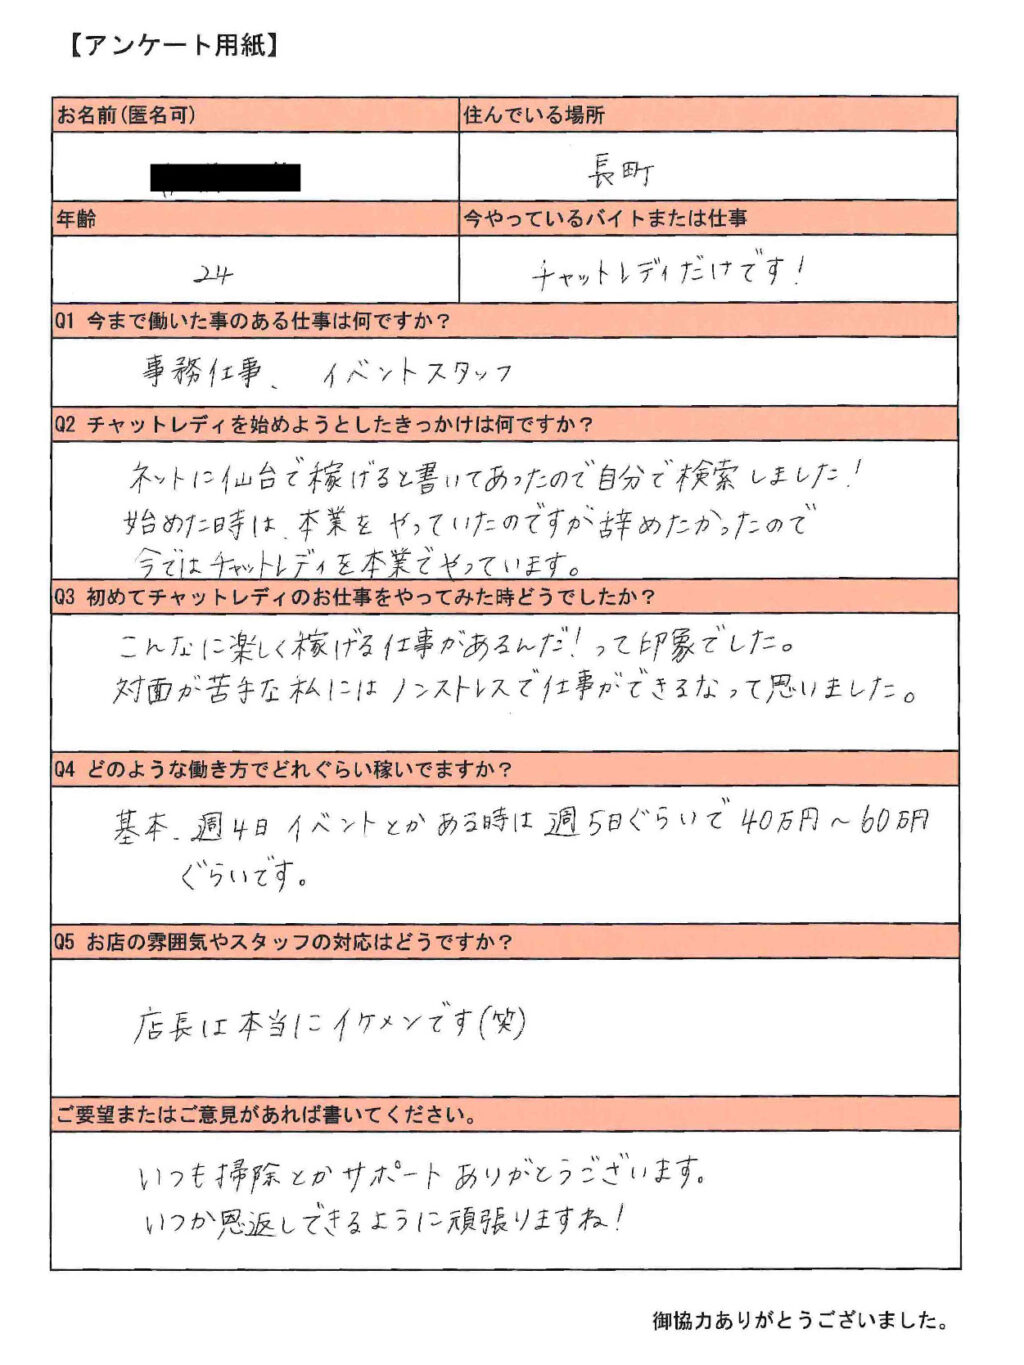 【アンケート用紙】
お名前(匿名可)
住んでいる場所
長町
年齢
今やっているバイトまたは仕事
24
チャットレディだけです!
Q1 今まで働いた事のある仕事は何ですか?
事務仕事、イベントスタッフ
Q2 チャットレディを始めようとしたきっかけは何ですか?
ネットに仙台で稼げると書いてあったので自分で検索しました!
始めた時は、本業をやっていたのですが辞めたかったので
今ではチャットレディを本業でやっています。
Q3 初めてチャットレディのお仕事をやってみた時どうでしたか?
こんなに楽しく稼げる仕事があるんだ!って印象でした。
対面が苦手な私にはノンストレスで仕事ができるなって思いました。
Q4 どのような働き方でどれぐらい稼いでますか?
基本、週4日イベントとかある時は週5日ぐらいで40万円~60万円
ぐらいです。
Q5 お店の雰囲気やスタッフの対応はどうですか?
店長は本当にイケメンです(笑)
ご要望またはご意見があれば書いてください。
いつも掃除とかサポートありがとうございます。
いつか恩返しできるように頑張りますね!
御協力ありがとうございました。